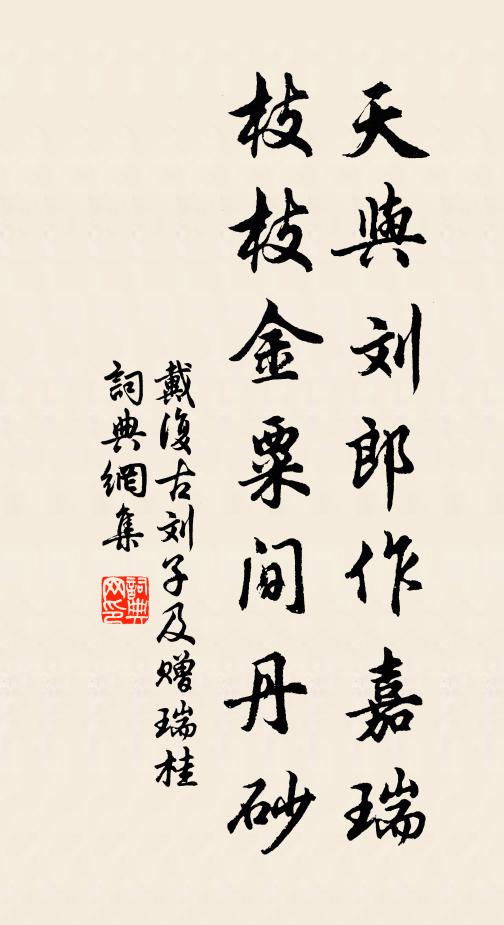 天與刘郎作嘉瑞
枝枝金粟间丹砂
戴復古刘子及赠瑞桂
詞典網集
詞典网印